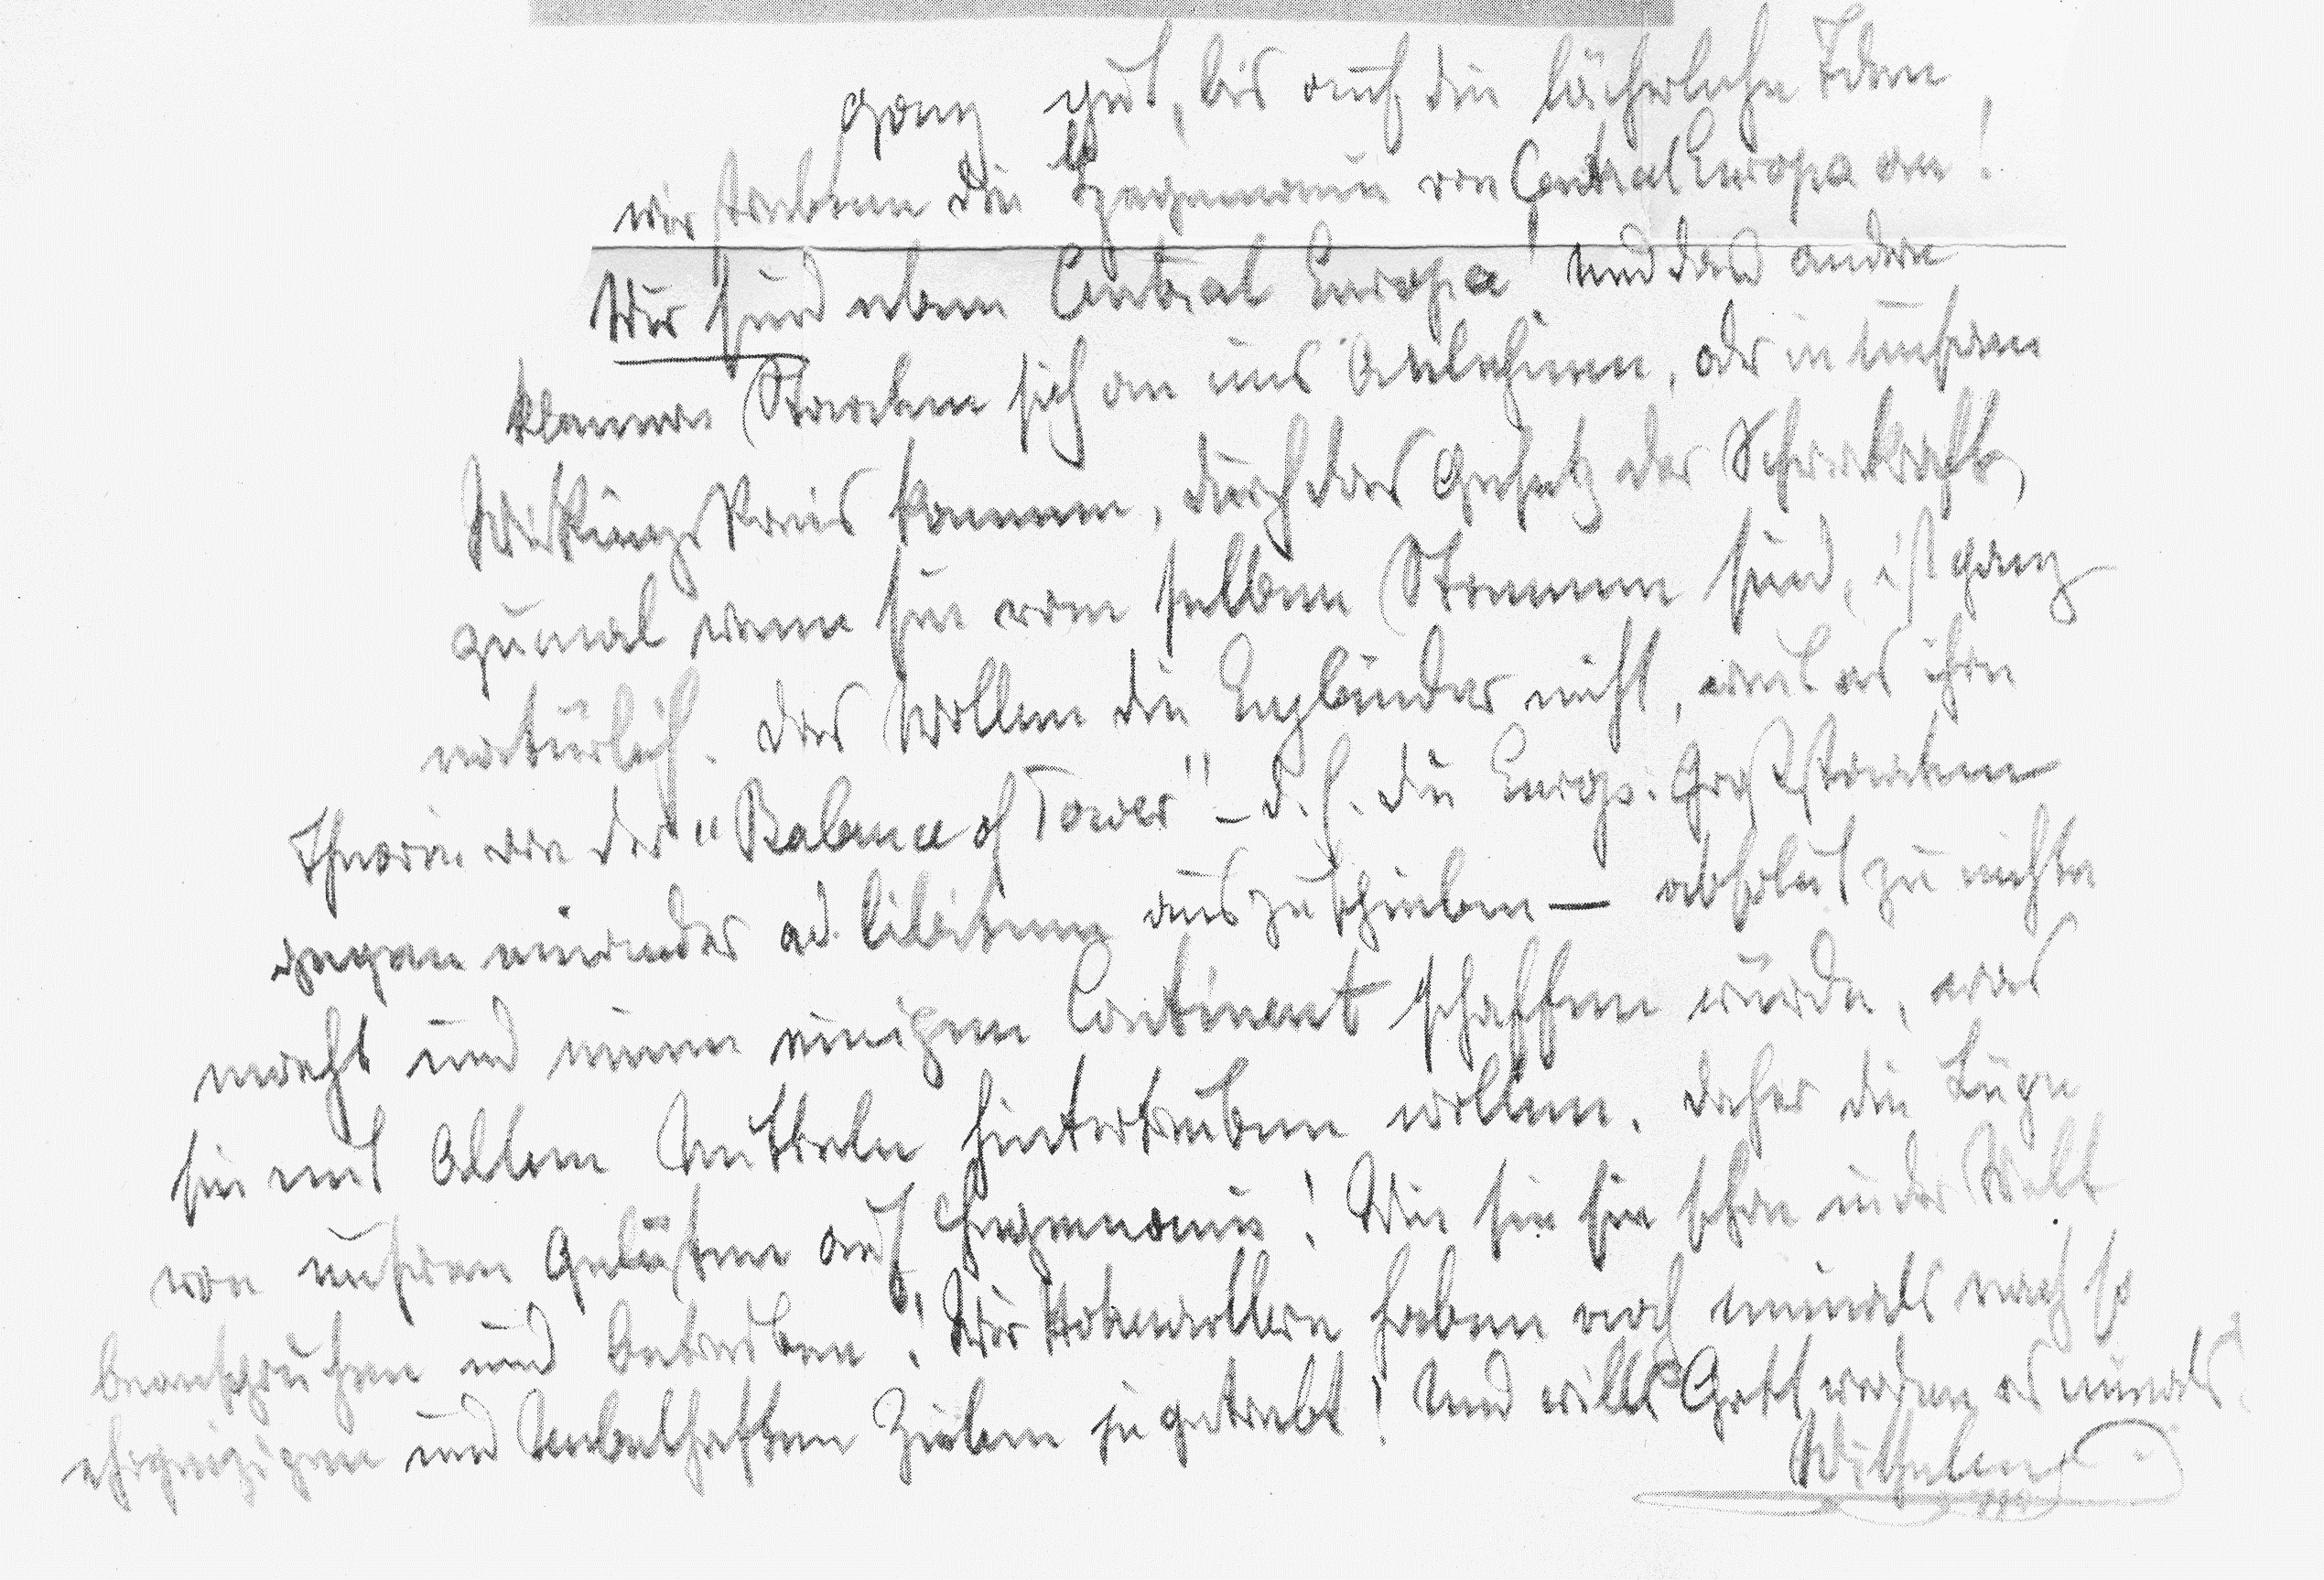 Ganz gut, bis auf die lächerliche Idee
wir strebten die Hegemonie von Central Europa an!
Wir sind eben Central Europa! und daß andere
kleinere Staaten sich an uns Anlehnen, oder in unseren
Wirkungskreis kommen, durch das Gesetz der Schwerkraft,
zumal wenn sie vom selben Stamme sind, ist ganz
natürlich. Das Wollen die Engländer nicht, weil es ihre
Theorie von der "Balance of Power" – d.h. die Europ: Großstaaten
gegen einander ad libitum auszuspielen — absolut zu nichte
macht und einen einigen Continent schaffen würde, was
sie mit Allen Mitteln hintertreiben wollen. Daher die Lüge
von unseren Gelüsten auf Hegemonie! Wie sie sie schon in der Welt
beanspruchen und betreiben! Wir Hohenzollern haben noch niemals nach so
ehrgeizigen und Nebelhaften Zielen je gestrebt! Und wills Gott werden es niemals!
Wilhelm